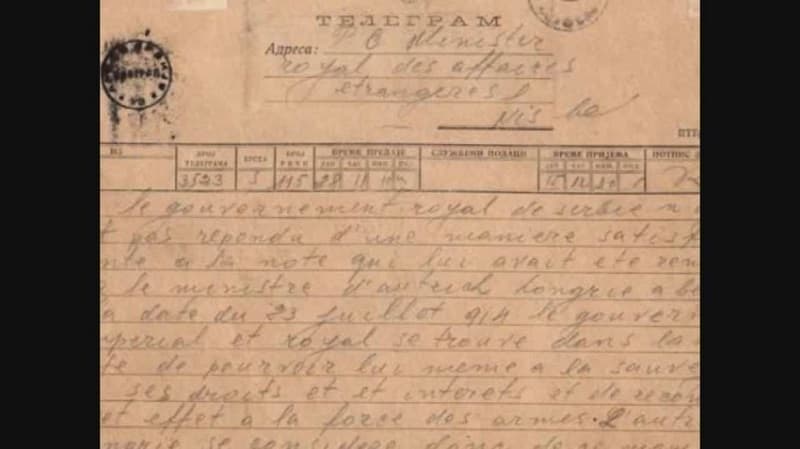 ТЕЛЕГРАМ
Адреса: Minister
royal des affaires
etrangeres
Nis
БРОЈ ТЕЛЕГРАМА ВРСТА БРОЈ РЕЧИ ВРЕМЕ ПРЕДАЈЕ СЛУЖБЕНИ ПОДАЦИ ВРЕМЕ ПРИЈЕМА ПОТПИС
3523 115 28 11
le gouvernement royal de serbie n
t pas repondu d'une maniere satisf
nte a la note qui lui avait ete rem
le ministre d'autrich hongrie a be
a date du 23 juillot 914 le gouver
mperial et royal se trouve dans la
te de pourvoir lui meme a la sauve
ses droits et et interets et de recou
et effet a la force des armes. L'autr
se considere donc de ce mom